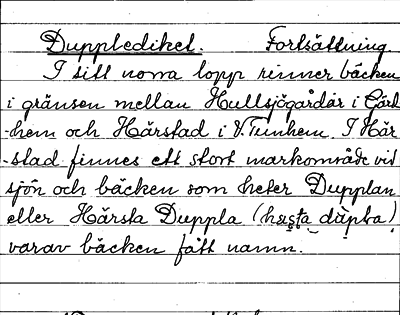 Dupplediket. Fortsättning.
I sitt norra lopp rinner bäcken
i gränsen mellan Hullsjögårdar i Gärd
-hem och Härstad i V. Tunhem. I Här
-stad finnes ett stort markområde vid
sjön och bäcken som heter Dupplan
eller Härsta Duppla (hæsta dùpla)
varav bäcken fått namn.